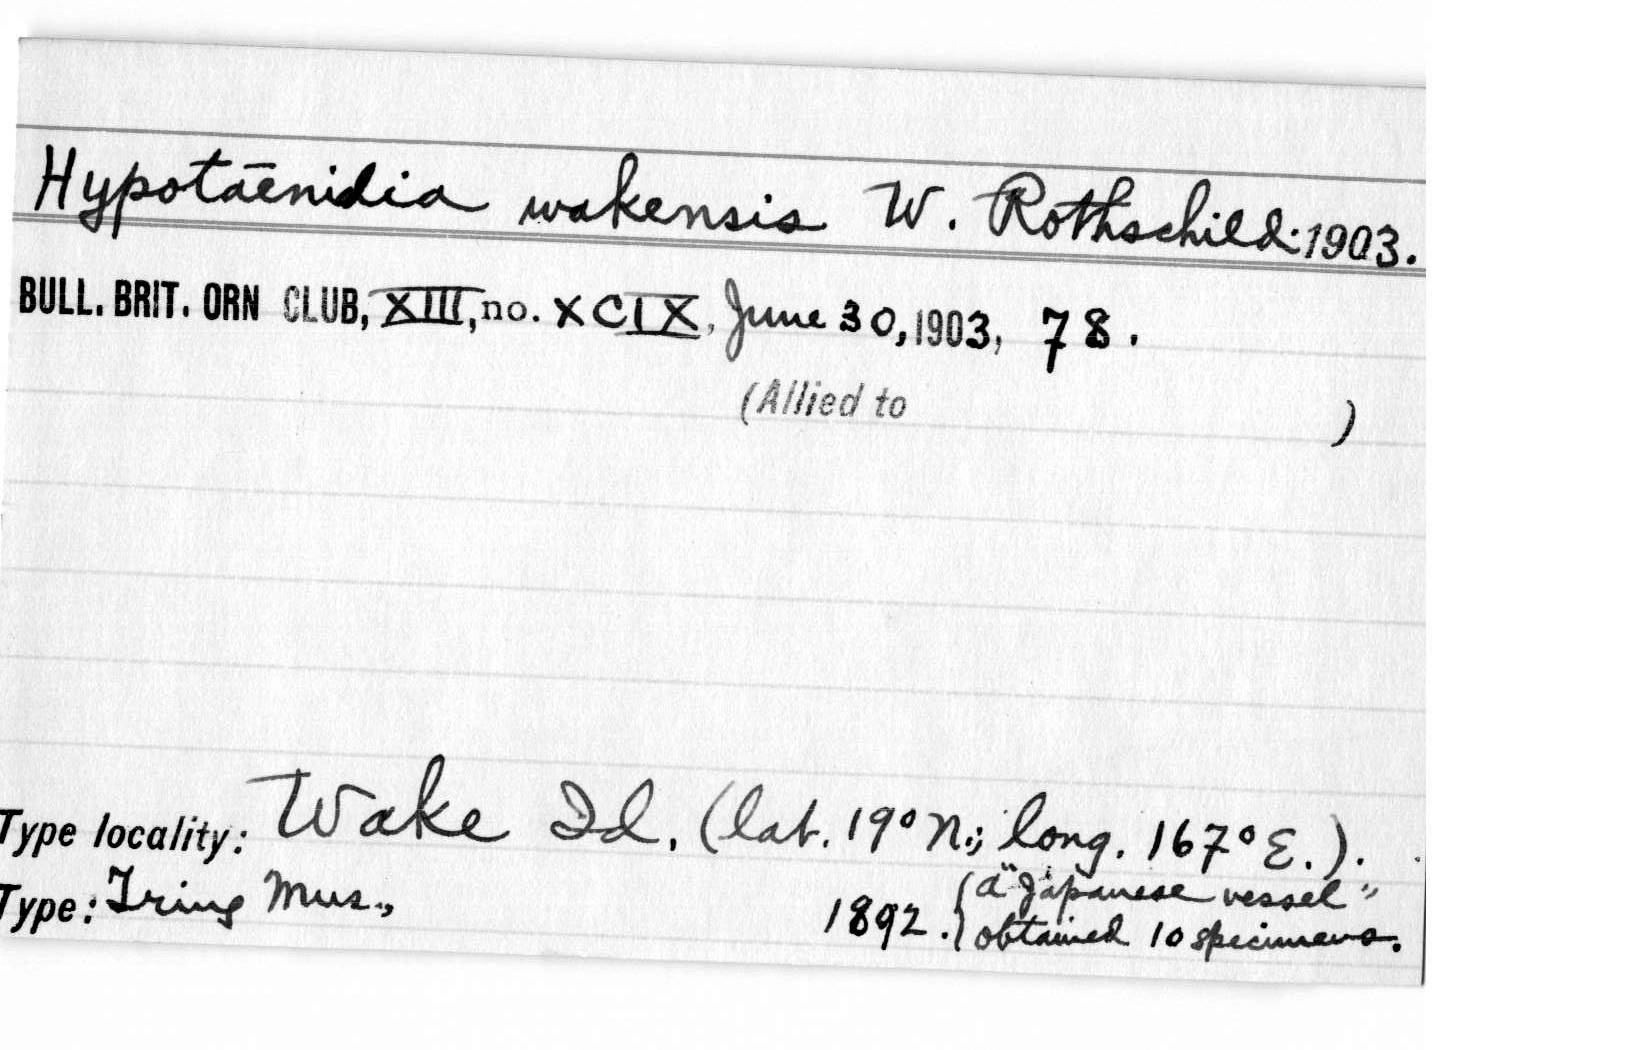 Hypotāenidia wakensis W. Rothschild:1903.
BULL. BRIT. ORN CLUB, XIII, no. XCIX, June 30, 1903, 78.
(Allied to )
Type locality: Wake Id. (lat. 19° N.; long. 167° E.).
Type: Tring Mus., 1892. { a "Japanese vessel"
obtained 10 specimens.